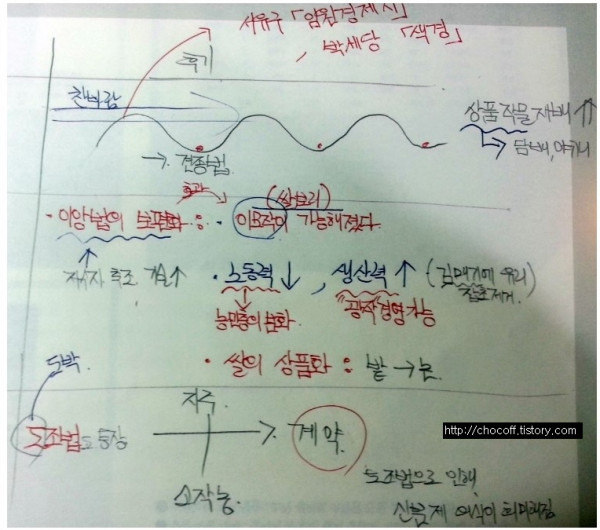 서유구 「임원경제지」
, 박세당 「색경」
후기
찬바람
상품작물 재배 ↑↑
→ 담배, 약재
→ 견종법
효과
(쌀보리)
· 이앙법의 보편화 : · 이모작이 가능해졌다.
저수지 축조 기술↑ · 노동력↓, 생산력↑ (김매기에 유리)
잡초제거.
농민층의 분화 "광작"경영가능
· 쌀의 상품화 : 밭 → 논
도박.
지주.
도조법도 등장 → 계약.
http://chocoff.tistory.com
소작농.
도조법으로 인해,
신분제 의식이 희미해짐